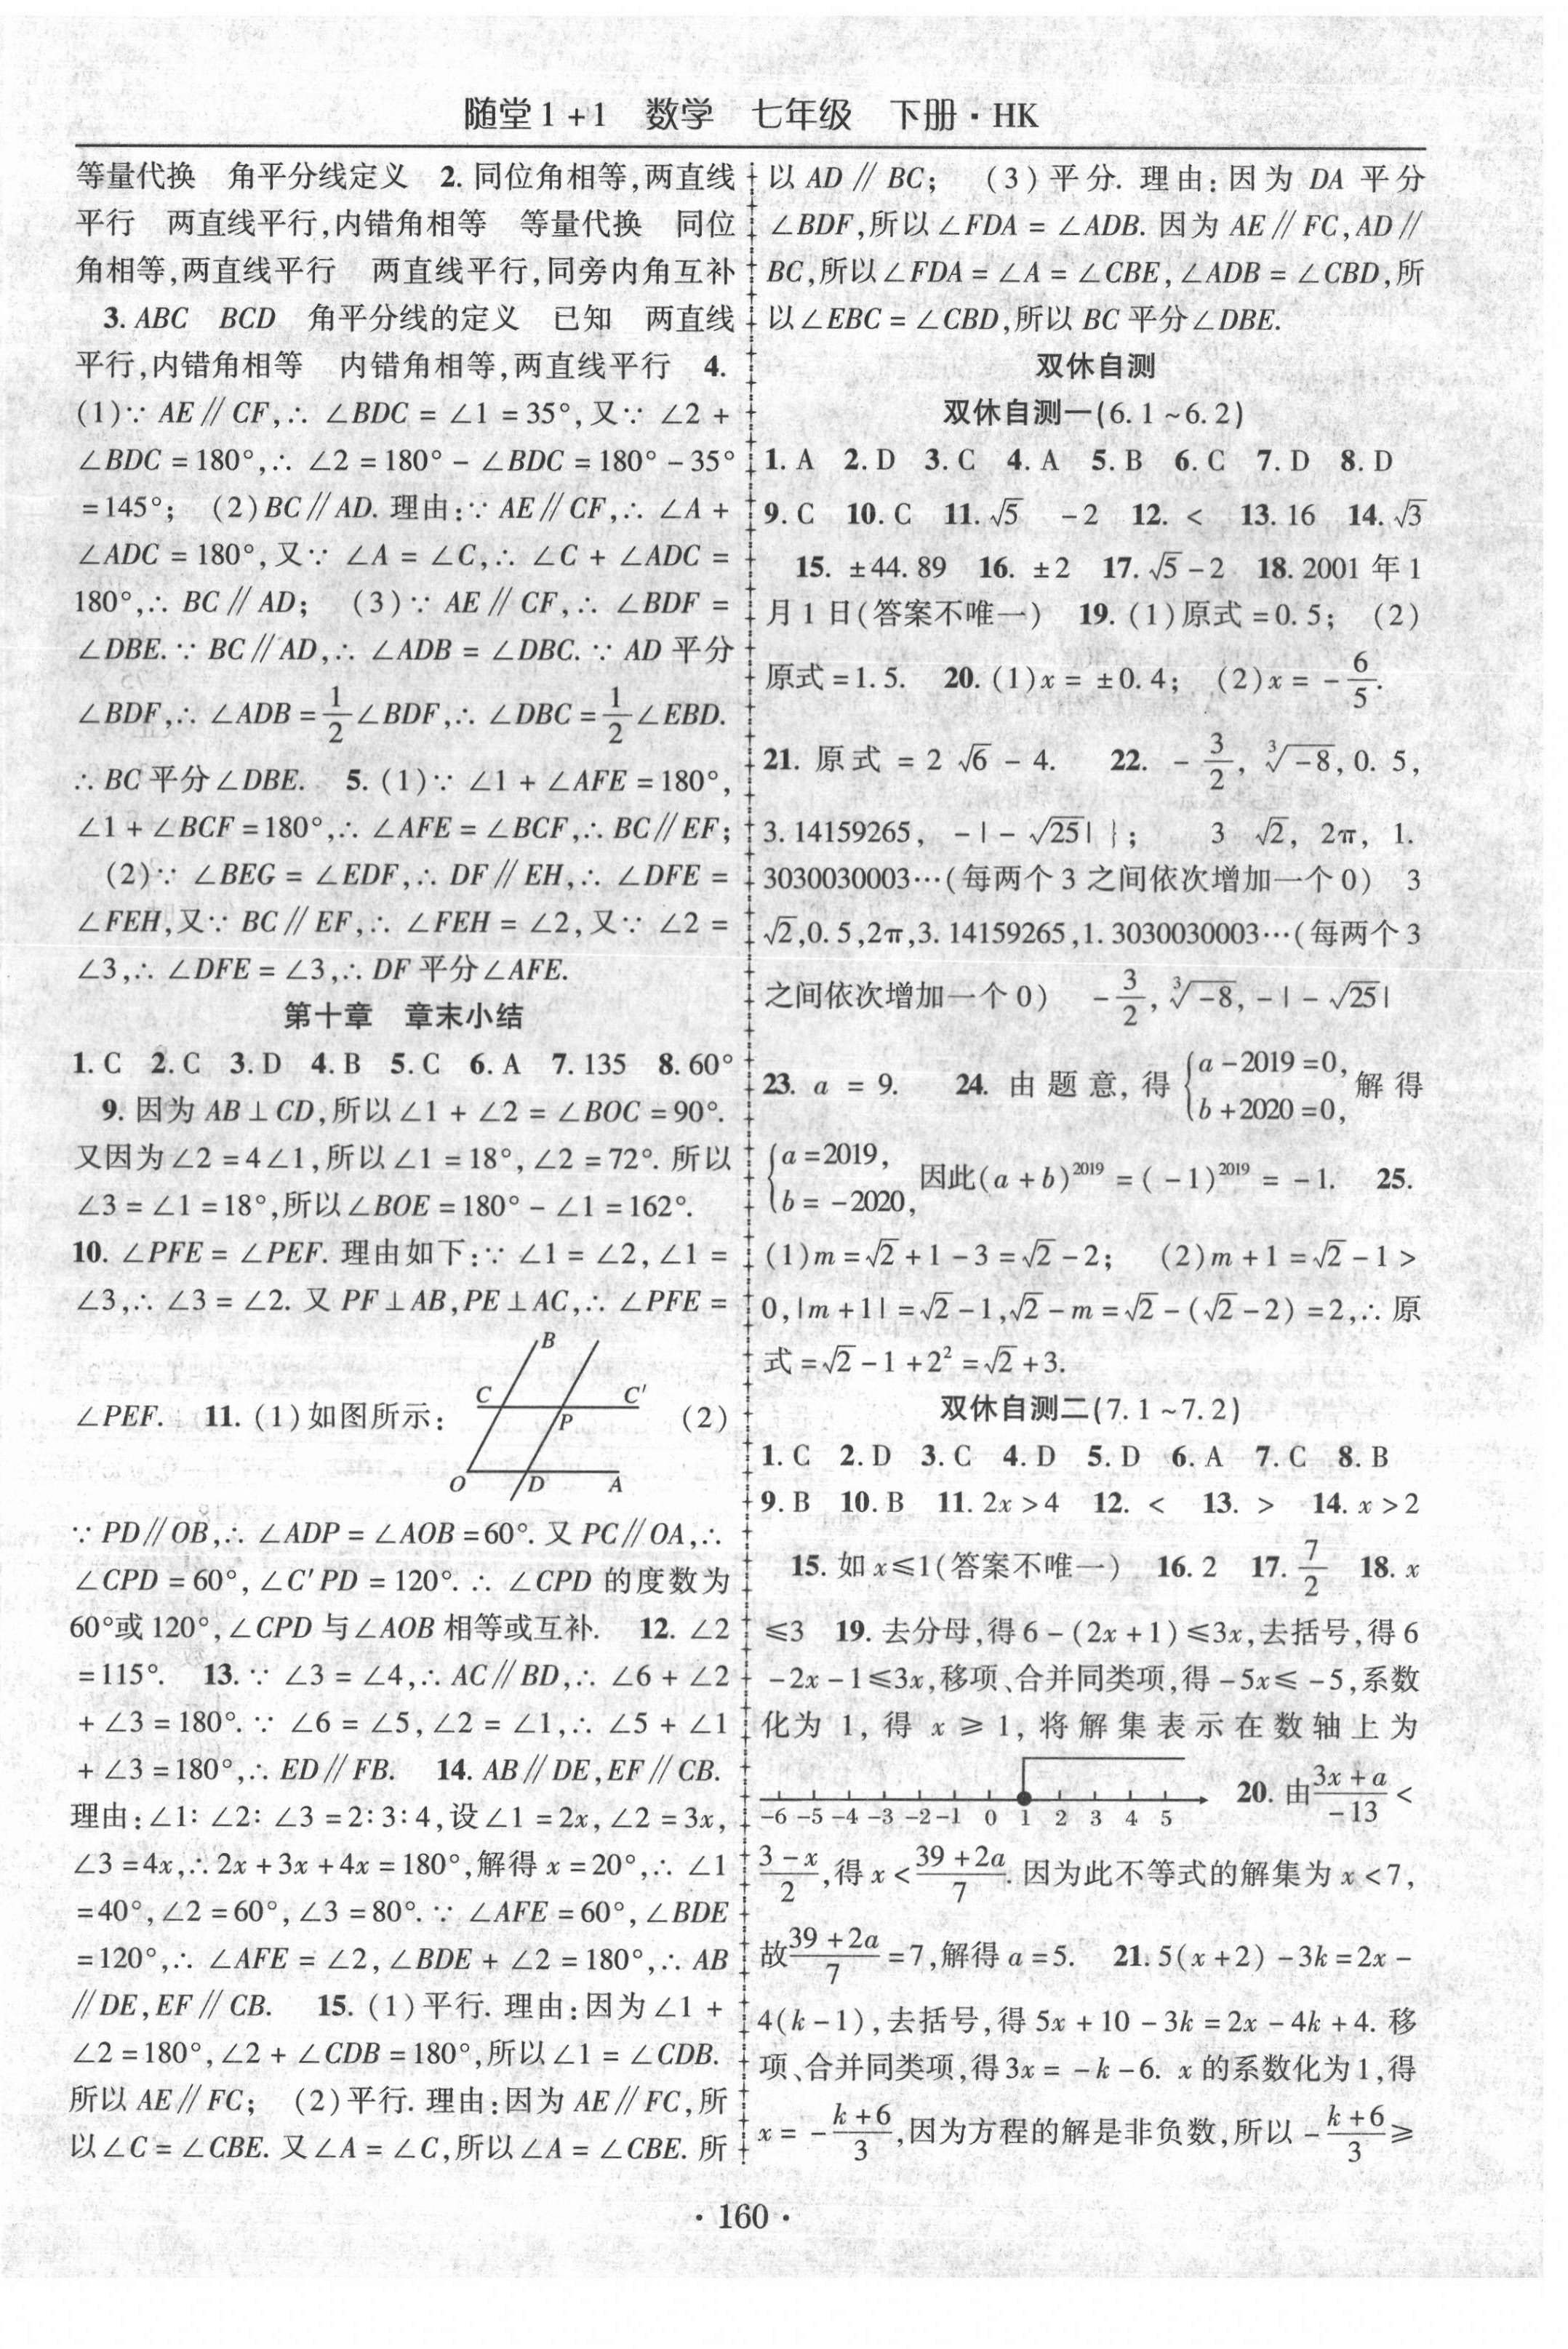 随堂1+1 数学 七年级 下册·HK
等量代换 角平分线定义 2. 同位角相等,两直线
平行 两直线平行,内错角相等 等量代换 同位
角相等,两直线平行 两直线平行,同旁内角互补
3. ABC BCD 角平分线的定义 已知 两直线
平行,内错角相等 内错角相等,两直线平行 4.
(1)∵ AE∥CF,∴ ∠BDC = ∠1 = 35°,又∵ ∠2 +
∠BDC = 180°,∴ ∠2 = 180° - ∠BDC = 180° - 35°
= 145°; (2)BC∥AD. 理由:∵ AE∥CF,∴ ∠A +
∠ADC = 180°,又∵ ∠A = ∠C,∴ ∠C + ∠ADC =
180°,∴ BC∥AD; (3)∵ AE∥CF,∴ ∠BDF =
∠DBE. ∵ BC∥AD,∴ ∠ADB = ∠DBC. ∵ AD 平分
∠BDF,∴ ∠ADB = 1/2∠BDF,∴ ∠DBC = 1/2∠EBD.
∴ BC 平分∠DBE. 5. (1)∵ ∠1 + ∠AFE = 180°,
∠1 + ∠BCF = 180°,∴ ∠AFE = ∠BCF,∴ BC∥EF;
(2)∵ ∠BEG = ∠EDF,∴ DF∥EH,∴ ∠DFE =
∠FEH,又∵ BC∥EF,∴ ∠FEH = ∠2,又∵ ∠2 =
∠3,∴ ∠DFE = ∠3,∴ DF 平分∠AFE.
第十章 章末小结
1. C 2. C 3. D 4. B 5. C 6. A 7. 135 8. 60°
9. 因为 AB⊥CD,所以∠1 + ∠2 = ∠BOC = 90°.
又因为∠2 = 4∠1,所以∠1 = 18°,∠2 = 72°. 所以
∠3 = ∠1 = 18°,所以∠BOE = 180° - ∠1 = 162°.
10. ∠PFE = ∠PEF. 理由如下:∵ ∠1 = ∠2,∠1 =
∠3,∴ ∠3 = ∠2. 又 PF⊥AB,PE⊥AC,∴ ∠PFE =
∠PEF. 11. (1)如图所示: (2)
B
C C'
P
O D A
∵ PD∥OB,∴ ∠ADP = ∠AOB = 60°. 又 PC∥OA,∴
∠CPD = 60°,∠C'PD = 120°. ∴ ∠CPD 的度数为
60°或120°,∠CPD 与∠AOB 相等或互补. 12. ∠2
= 115°. 13. ∵ ∠3 = ∠4,∴ AC∥BD,∴ ∠6 + ∠2
+ ∠3 = 180°. ∵ ∠6 = ∠5,∠2 = ∠1,∴ ∠5 + ∠1
+ ∠3 = 180°,∴ ED∥FB. 14. AB∥DE,EF∥CB.
理由:∠1∶∠2∶∠3 = 2∶3∶4,设∠1 = 2x,∠2 = 3x,
∠3 = 4x,∴ 2x + 3x + 4x = 180°,解得 x = 20°,∴ ∠1
= 40°,∠2 = 60°,∠3 = 80°. ∵ ∠AFE = 60°,∠BDE
= 120°,∴ ∠AFE = ∠2,∠BDE + ∠2 = 180°,∴ AB
∥DE,EF∥CB. 15. (1)平行. 理由:因为∠1 +
∠2 = 180°,∠2 + ∠CDB = 180°,所以∠1 = ∠CDB.
所以 AE∥FC; (2)平行. 理由:因为 AE∥FC,所
以∠C = ∠CBE. 又∠A = ∠C,所以∠A = ∠CBE. 所
以 AD∥BC; (3)平分. 理由:因为 DA 平分
∠BDF,所以∠FDA = ∠ADB. 因为 AE∥FC,AD∥
BC,所以∠FDA = ∠A = ∠CBE,∠ADB = ∠CBD,所
以∠EBC = ∠CBD,所以 BC 平分∠DBE.
双休自测
双休自测一(6.1~6.2)
1. A 2. D 3. C 4. A 5. B 6. C 7. D 8. D
9. C 10. C 11. √5 -2 12. < 13. 16 14. √3
15. ±44.89 16. ±2 17. √5 - 2 18. 2001 年 1
月 1 日(答案不唯一) 19. (1)原式 = 0.5; (2)
原式 = 1.5. 20. (1)x = ±0.4; (2)x = -6/5.
21. 原式 = 2√6 - 4. 22. -3/2, ∛-8, 0.5,
3.14159265, -|-√25| }; 3√2, 2π, 1.
3030030003…(每两个 3 之间依次增加一个 0) 3
√2,0.5,2π,3.14159265,1.3030030003…(每两个 3
之间依次增加一个 0) -3/2, ∛-8, -|-√25|
23. a = 9. 24. 由题意,得{a - 2019 = 0, b + 2020 = 0, 解得
{a = 2019, b = -2020, 因此(a + b)²⁰¹⁹ = (-1)²⁰¹⁹ = -1. 25.
(1)m = √2 + 1 - 3 = √2 - 2; (2)m + 1 = √2 - 1 >
0,|m + 1| = √2 - 1,√2 - m = √2 - (√2 - 2) = 2,∴ 原
式 = √2 - 1 + 2² = √2 + 3.
双休自测二(7.1~7.2)
1. C 2. D 3. C 4. D 5. D 6. A 7. C 8. B
9. B 10. B 11. 2x > 4 12. < 13. > 14. x > 2
15. 如 x≤1(答案不唯一) 16. 2 17. 7/2 18. x
≤3 19. 去分母,得 6 - (2x + 1)≤3x,去括号,得 6
- 2x - 1≤3x,移项、合并同类项,得 -5x≤ -5,系数
化为 1,得 x≥1,将解集表示在数轴上为
-6 -5 -4 -3 -2 -1 0 1 2 3 4 5 20. 由(3x + a)/(-13) <
(3 - x)/2,得 x < (39 + 2a)/7. 因为此不等式的解集为 x < 7,
故(39 + 2a)/7 = 7,解得 a = 5. 21. 5(x + 2) - 3k = 2x -
4(k - 1),去括号,得 5x + 10 - 3k = 2x - 4k + 4. 移
项、合并同类项,得 3x = -k - 6. x 的系数化为 1,得
x = -(k + 6)/3,因为方程的解是非负数,所以 -(k + 6)/3 ≥
· 160 ·